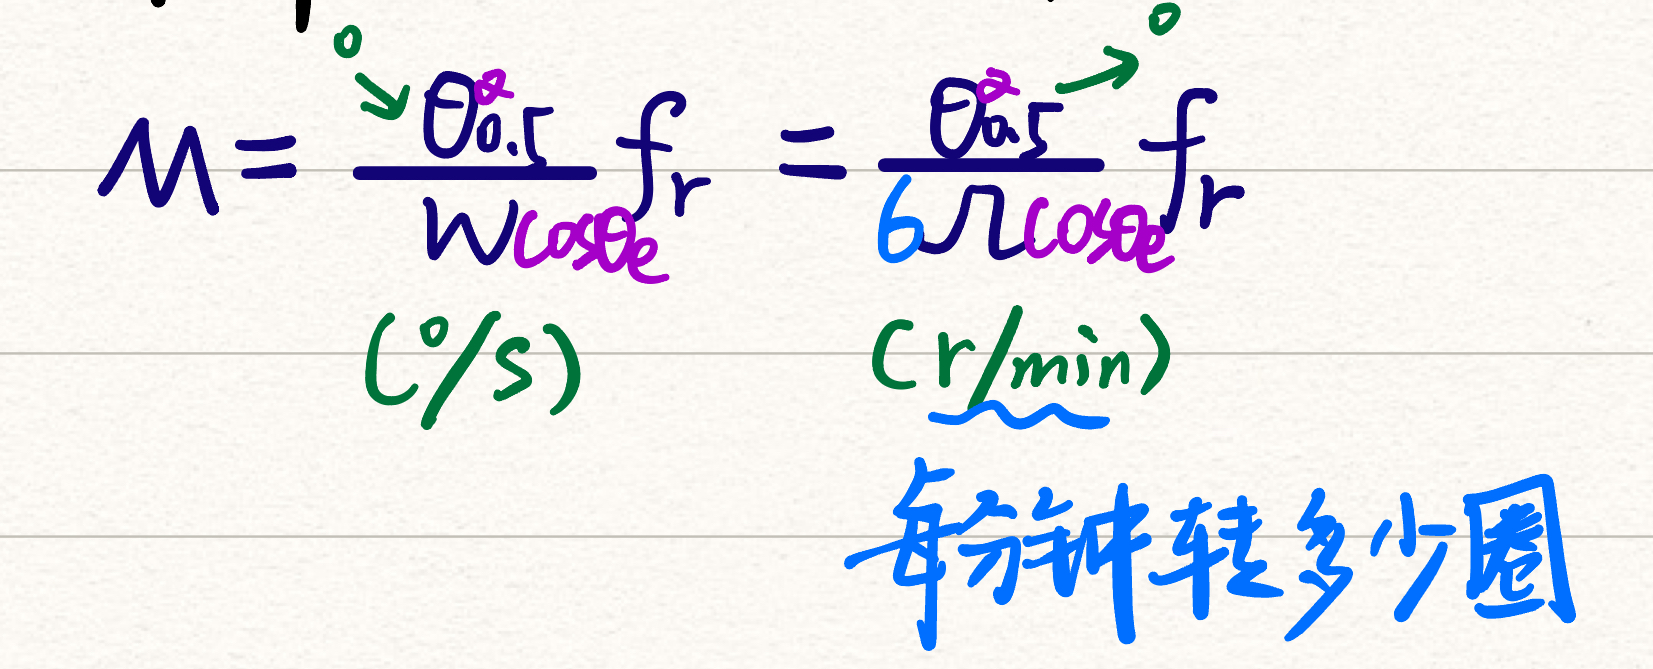 M = θα0.5 / Wcosθe fr = θα0.5 / 6Ωcosθe fr
(°/s) (r/min)
每分钟转多少圈